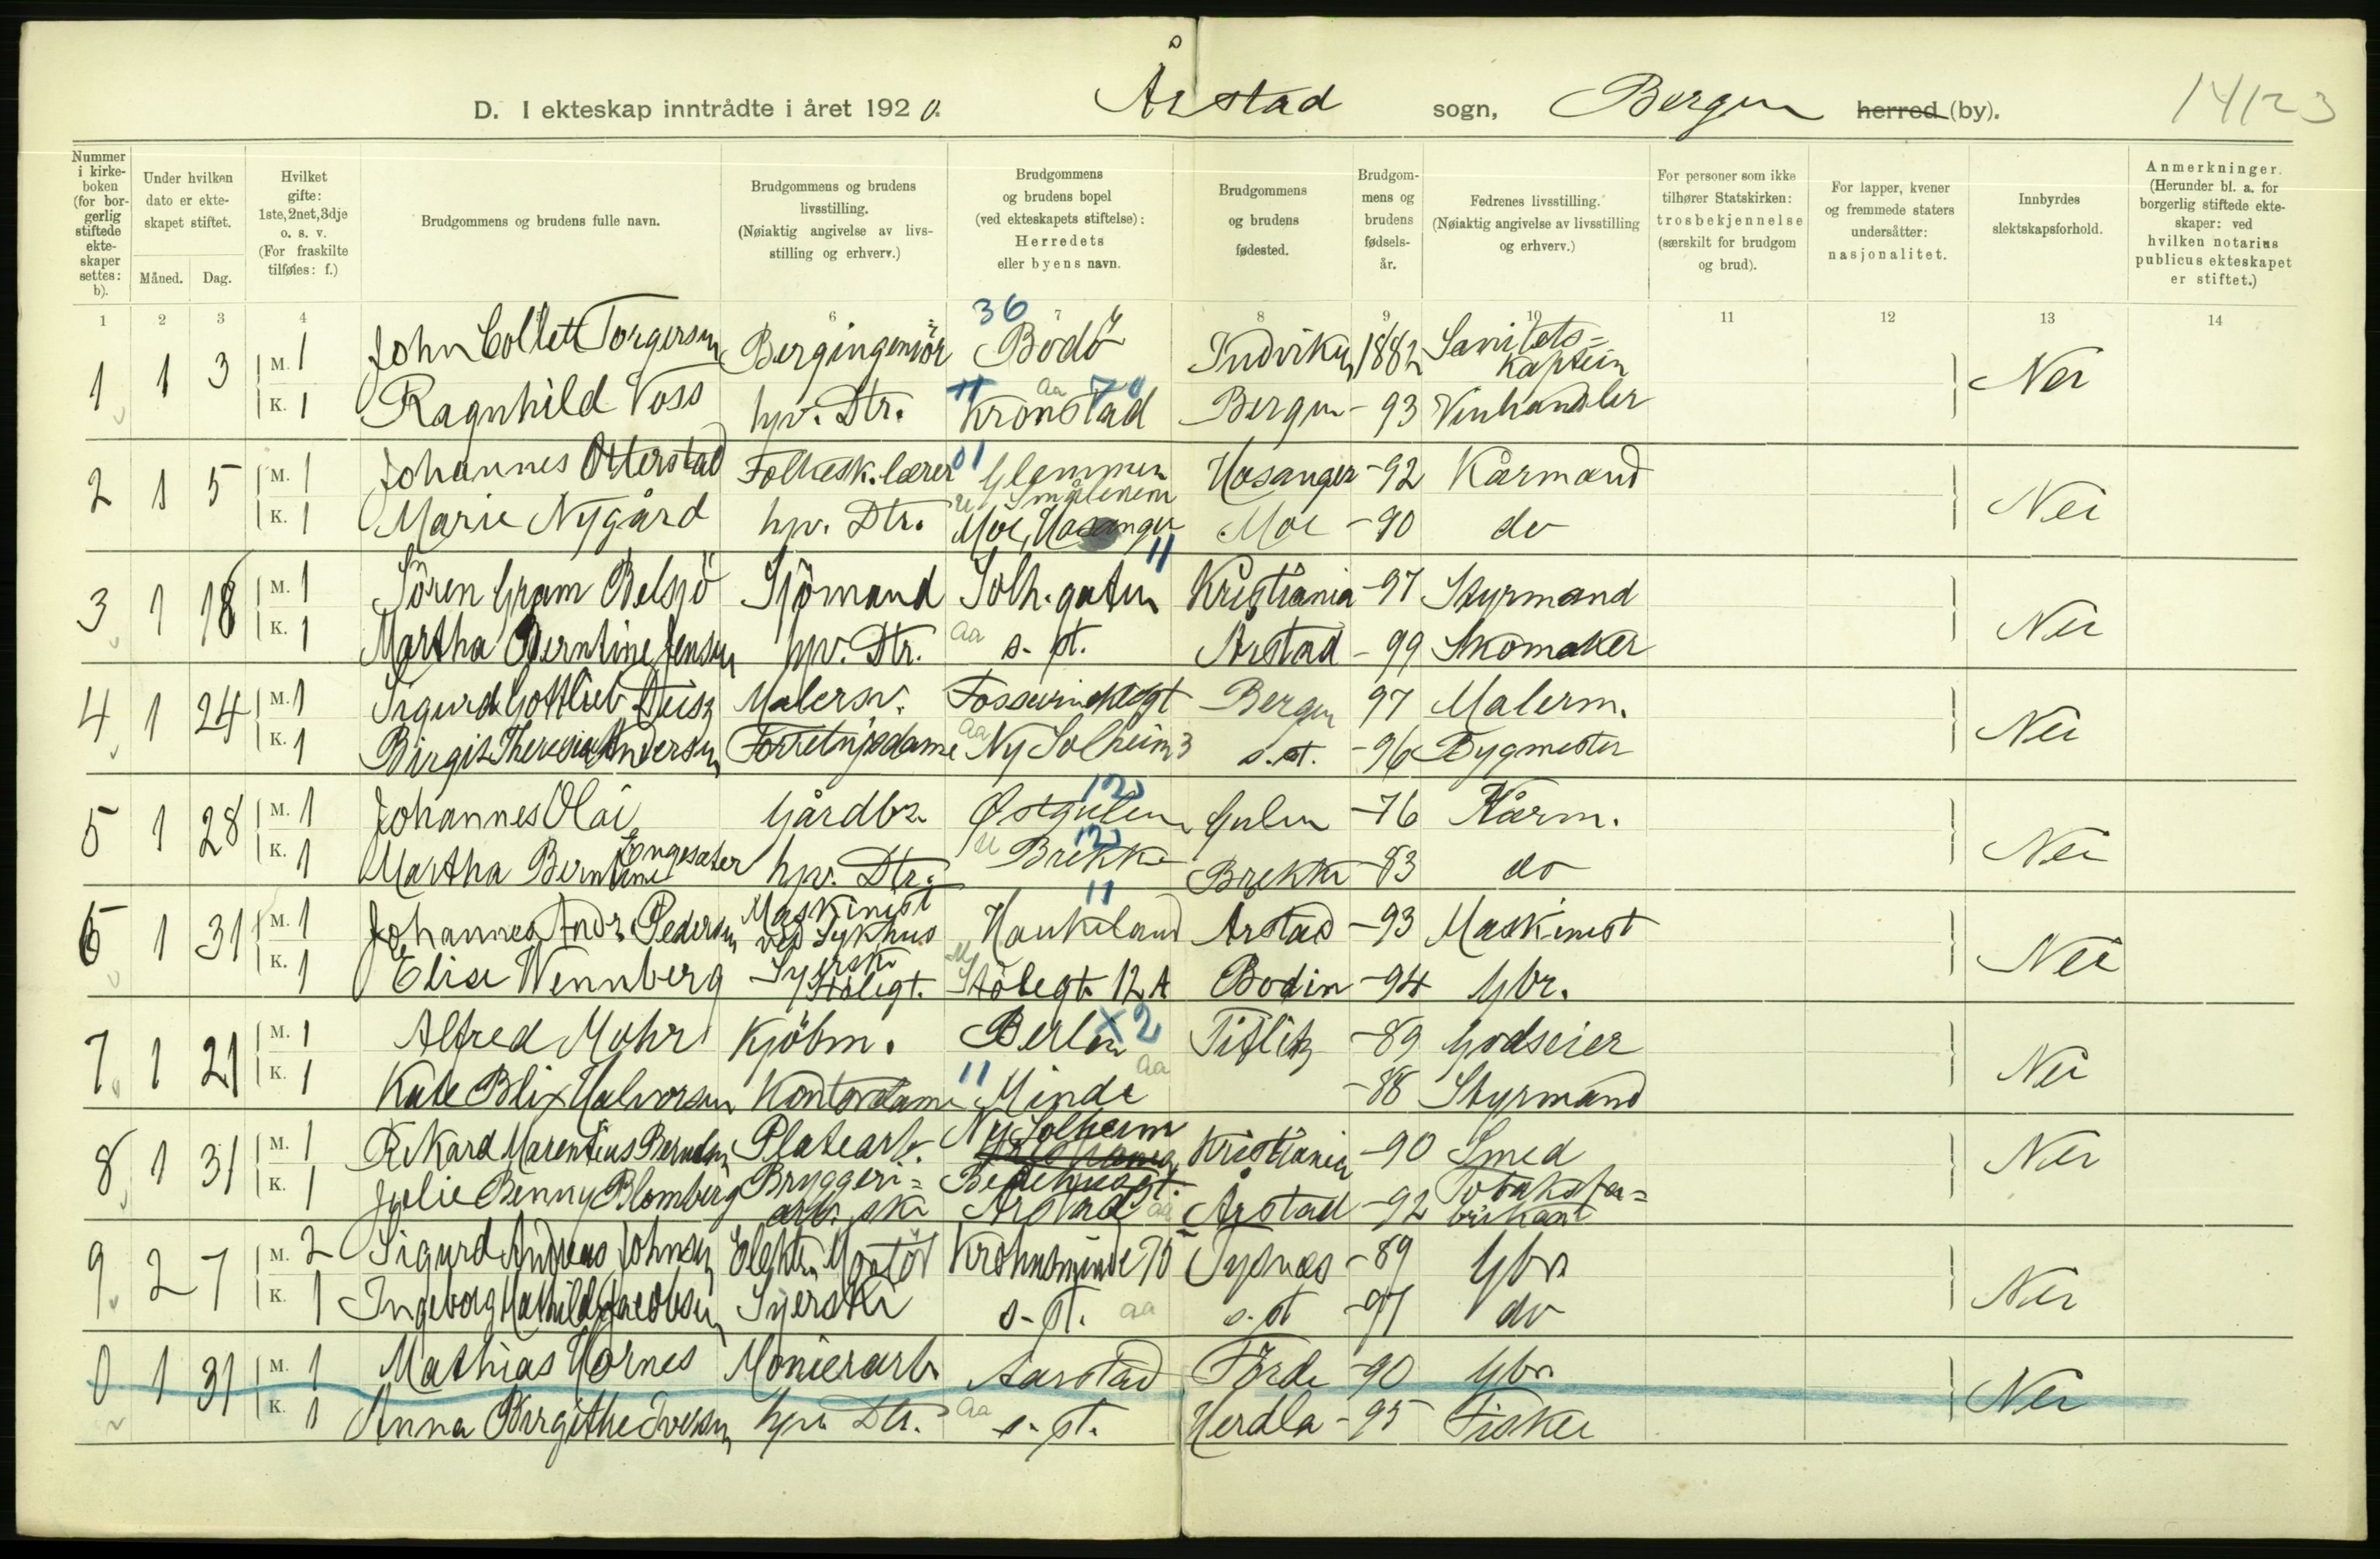 D. I ekteskap inntrådte i året 1920. Årstad sogn, Bergen herred (by). 14123
Nummer i kirke-boken (for bor-gerlig stiftede ekte-skaper settes: b).
Under hvilken dato er ekte-skapet stiftet.
Måned. Dag.
Hvilket gifte: 1ste, 2net, 3dje o. s. v. (For fraskilte tilføies: f.)
Brudgommens og brudens fulle navn.
Brudgommens og brudens livsstilling. (Nøiaktig angivelse av livs-stilling og erhverv.)
Brudgommens og brudens bopel (ved ekteskapets stiftelse): Herredets eller byens navn.
Brudgommens og brudens fødested.
Brudgom-mens og brudens fødsels-år.
Fedrenes livsstilling. (Nøiaktig angivelse av livsstilling og erhverv.)
For personer som ikke tilhører Statskirken: trosbekjennelse (særskilt for brudgom og brud).
For lapper, kvener og fremmede staters undersåtter: nasjonalitet.
Innbyrdes slektskapsforhold.
Anmerkninger. (Herunder bl. a. for borgerlig stiftede ekte-skaper: ved hvilken notarius publicus ekteskapet er stiftet.)
1 2 3 4 6 7 8 9 10 11 12 13 14
36
1 1 3 M. 1 John Collett Torgersen Bergingeniör Bodö Indviken 1882 Sanitets=kaptein Nei
K. 1 Ragnhild Voss hpv. Dtr. 11 Kronstad aa 70 Bergen - 93 Vinhandler
2 1 5 M. 1 Johannes Otterstad Folkesk.lærer 01 Glemmen Smålenene Hosanger - 92 Kårmand Nei
K. 1 Marie Nygård hpv. Dtr. u Moe, Hosanger Moe - 90 do
3 1 18 M. 1 Sören Gram Belsjö Sjömand Solh.gaten 11 Kristiania - 97 Styrmand Nei
K. 1 Martha Berntine Jensen hpv. Dtr. aa s. st. Årstad - 99 Skomaker
4 1 24 M. 1 Sigurd Gottlieb Malersv. Bergen 97 Malerm. Nei
K. 1 Birgit Theresia Andersen Forretnjsdame aa Ny Solheim 3 s. st. - 96 Bygmester
5 1 28 M. 1 Johannes Olai Gårdbr. Østgulen 12 Gulen - 76 Kårm. Nei
K. 1 Martha Berntine Engesæter hpv. Dtr. u Brekke 12 Brekke - 83 do
6 1 31 M. 1 Johannes Andr. Pedersen Maskinist ved Sykhus Haukeland 11 Årstad - 93 Maskinist Nei
K. 1 Elise Wennberg Syerske Stölegt. Stölegt. 12 A Bodin - 94 Gbr.
7 1 21 M. 1 Alfred Mohr Kjöbm. Berlin X2 - 89 Godseier Nei
K. 1 Kate Blix Halvorsen Kontordame 11 Minde aa - 88 Styrmand
8 1 31 M. 1 Rikard Marentius Berntsen Platearb. Ny Solheim Kristiania - 90 Smed Nei
K. 1 Julie Benny Blomberg Bryggeri=arb.ske Bedehusgt. Årstad aa Årstad - 92 Tobaksfa=brikant
9 2 7 M. 2 Sigurd Andreas Johnsen Elektr. Montör Kronsminde 70 Tysnes - 89 Gbr. Nei
K. 1 Ingeborg Mathilde Jacobsen Syerske s. st. aa s. st - 97 do
0 1 31 M. 1 Mathias Hornes Monierarb. Aarstad Förde - 90 Gbr. Nei
K. 1 Anna Birgithe Iversen hpv. Dtr. aa s. st. Herdla - 95 Fisker